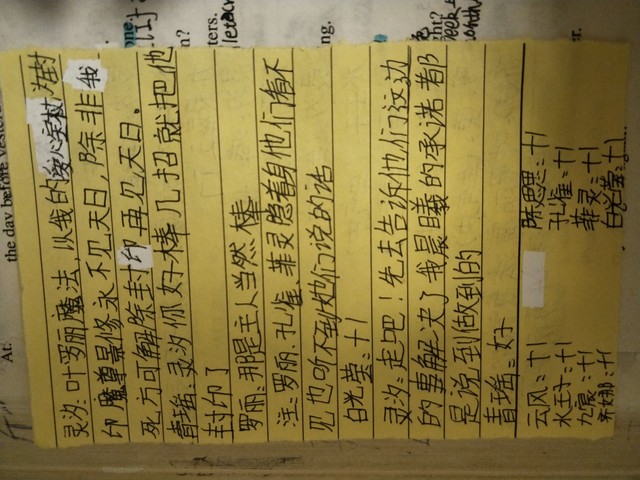 灵汐:叶罗丽魔法,以我的爱心宝杖为封
印魔尊景修永不见天日,除非我
死方可解除封印再见天日.
青瑶:灵汐你好棒几招就把他
封印了
罗丽:那是主人当然棒
注:罗丽、孔雀、菲灵隐着身他们看不
见也听不到她们说的话
白光莹:十1
灵汐:走吧!先去告诉他们这边
的事解决了我晨曦的承诺都
是说到做到的
青瑶:好
云风:十1
水王子:十1
九宸:十1
陈思思:十1
孔雀:十1
菲灵:十1
白光莹:十1
the day before yester
At:
ters.
ng.